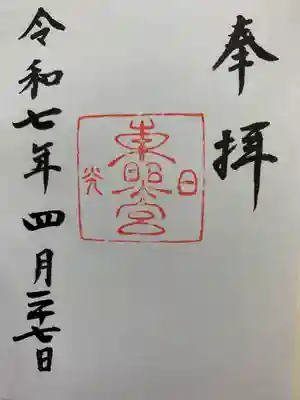 奉拝
日光
東照宮
令和七年四月二十七日